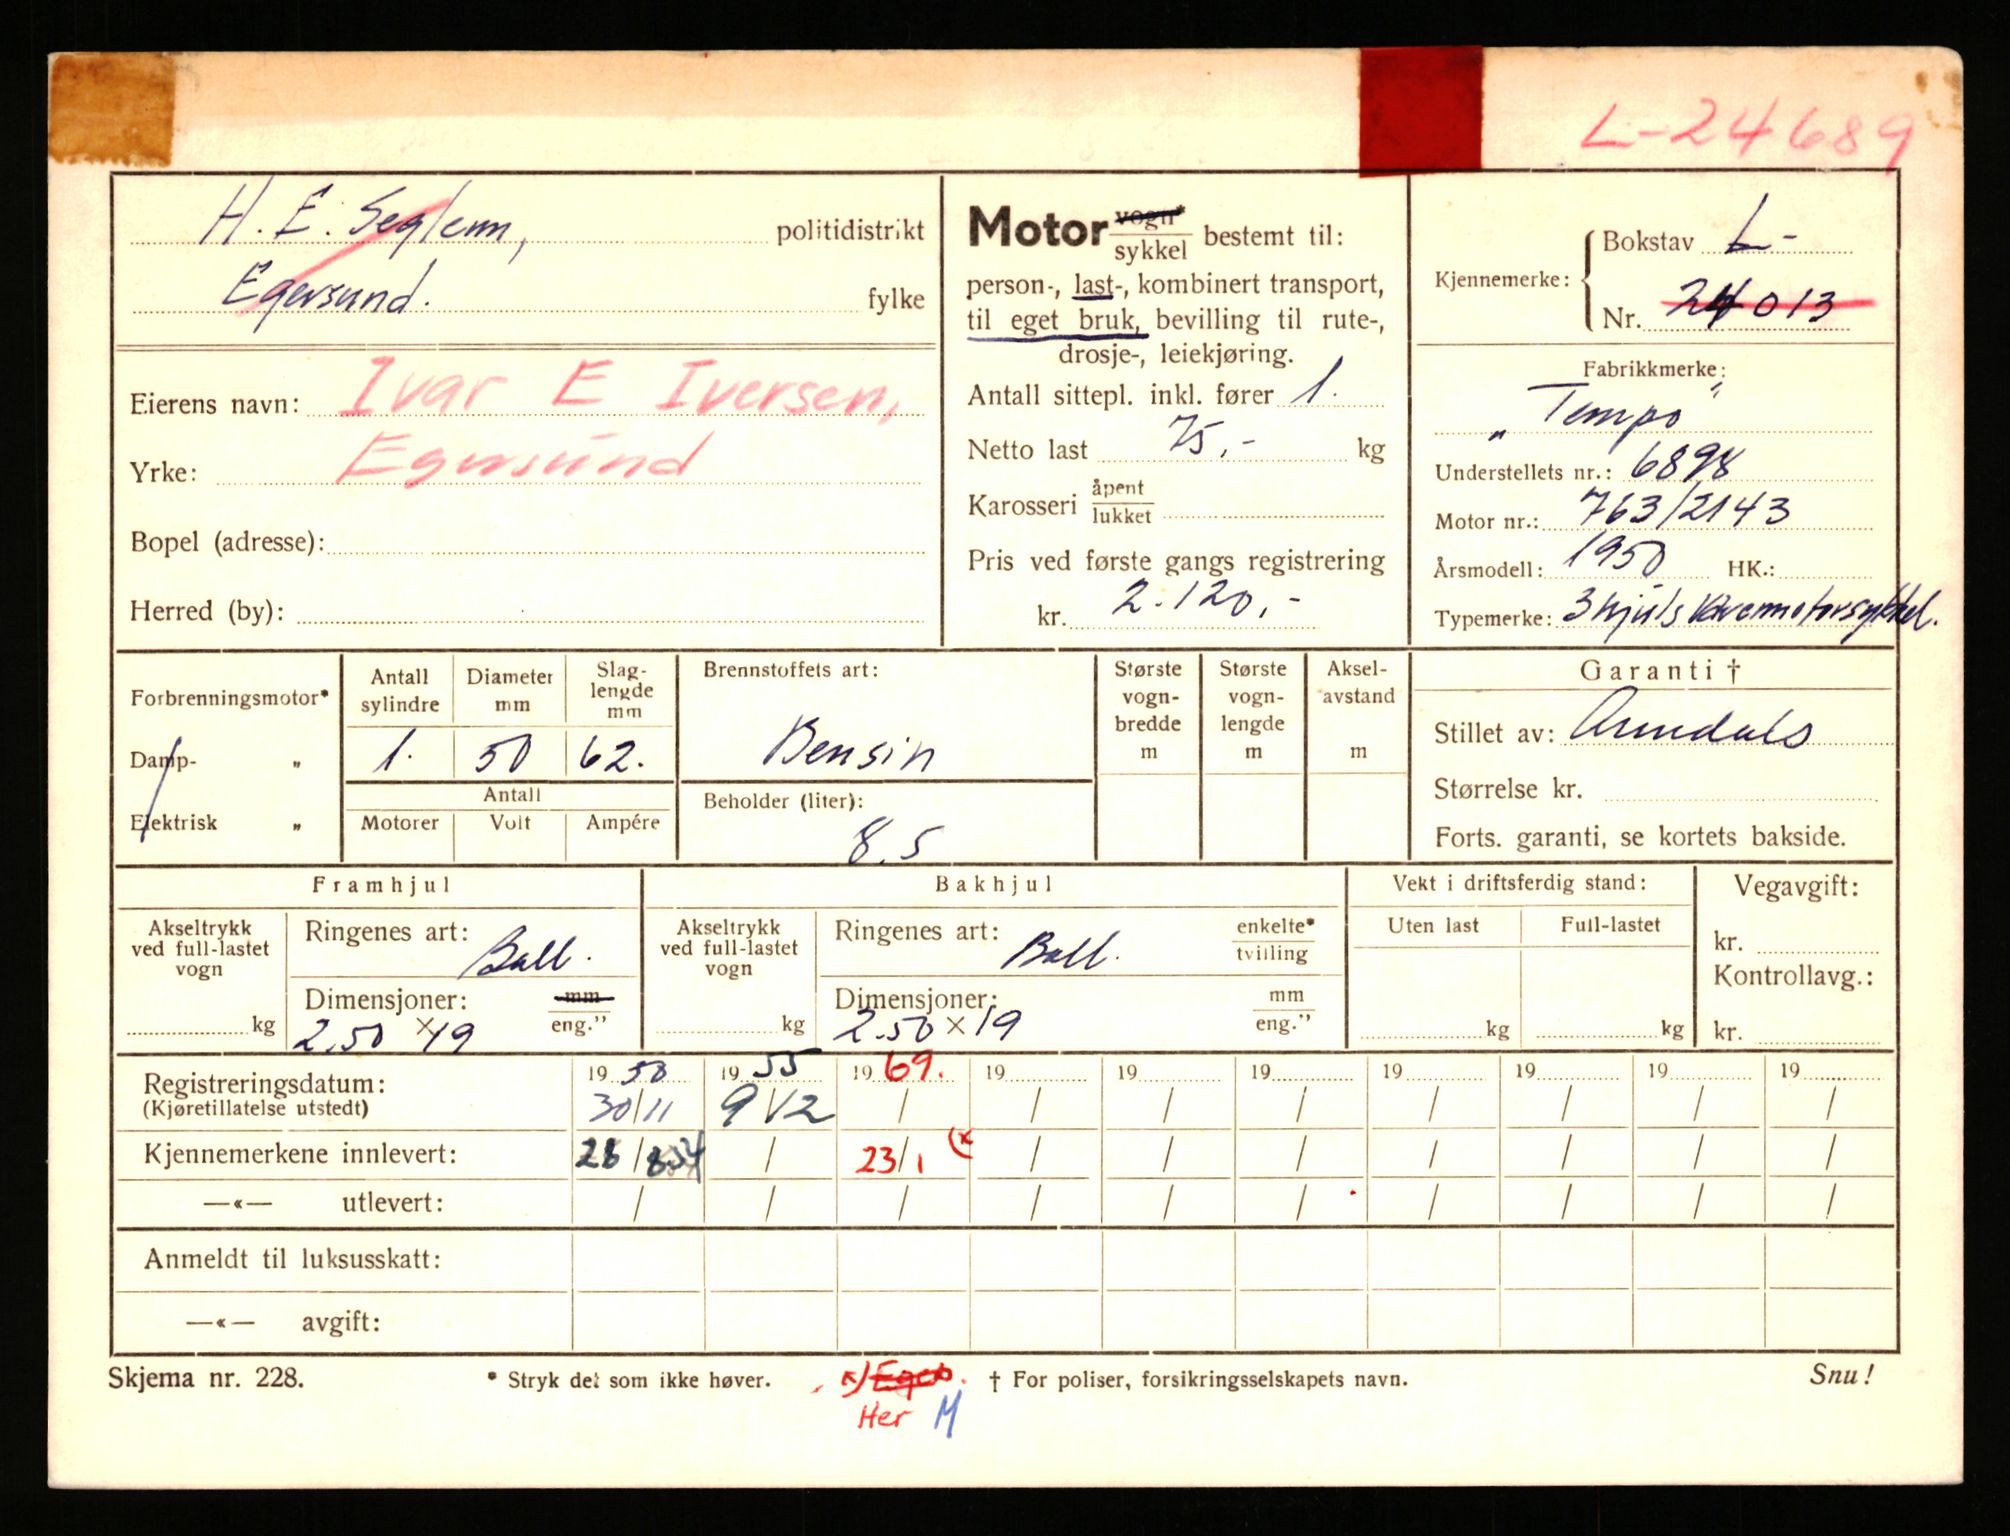 L-24689
H. E. Seglem, politidistrikt
Egersund. fylke
Eierens navn: Ivar E Iversen,
Yrke: Egersund
Bopel (adresse):
Herred (by):
Motor vogn* / sykkel bestemt til:
person-, last-, kombinert transport,
til eget bruk, bevilling til rute-,
drosje-, leiekjøring.
Antall sittepl. inkl. fører 1.
Netto last 75,- kg
Karosseri åpent / lukket
Pris ved første gangs registrering
kr. 2.120,-
Kjennemerke: Bokstav L-
Nr. 24013
Fabrikkmerke:
„Tempo"
Understellets nr.: 6898
Motor nr.: 763/2143
Årsmodell: 1950 HK.:
Typemerke: 3 hjuls Varemotorsykkel.
Forbrenningsmotor*
Damp- „
Elektrisk „
Antall sylindre Diameter mm Slag-lengde mm
1. 50 62.
Antall
Motorer Volt Ampére
Brennstoffets art:
Bensin
Beholder (liter):
8.5
Største vogn-bredde m
Største vogn-lengde m
Aksel-avstand m
Garanti †
Stillet av: Arendals
Størrelse kr.
Forts. garanti, se kortets bakside.
Framhjul
Akseltrykk ved full-lastet vogn
kg
Ringenes art: Ball.
Dimensjoner: mm / eng."
2.50 x 19
Bakhjul
Akseltrykk ved full-lastet vogn
kg
Ringenes art: Ball. enkelte* / tvilling
Dimensjoner: mm / eng."
2.50 x 19
Vekt i driftsferdig stand:
Uten last Full-lastet
kg kg
Vegavgift:
kr.
Kontrollavg.:
kr.
Registreringsdatum: 1950 1955 1969. 19 19 19 19 19 19 19
(Kjøretillatelse utstedt) 30/11 9/12 / / / / / / / /
Kjennemerkene innlevert: 28/8.54 / 23/1 (x / / / / / / /
—«— utlevert: / / / / / / / / / /
Anmeldt til luksusskatt:
—«— avgift:
Skjema nr. 228. * Stryk det som ikke høver. x) † For poliser, forsikringsselskapets navn. Snu!
Her M